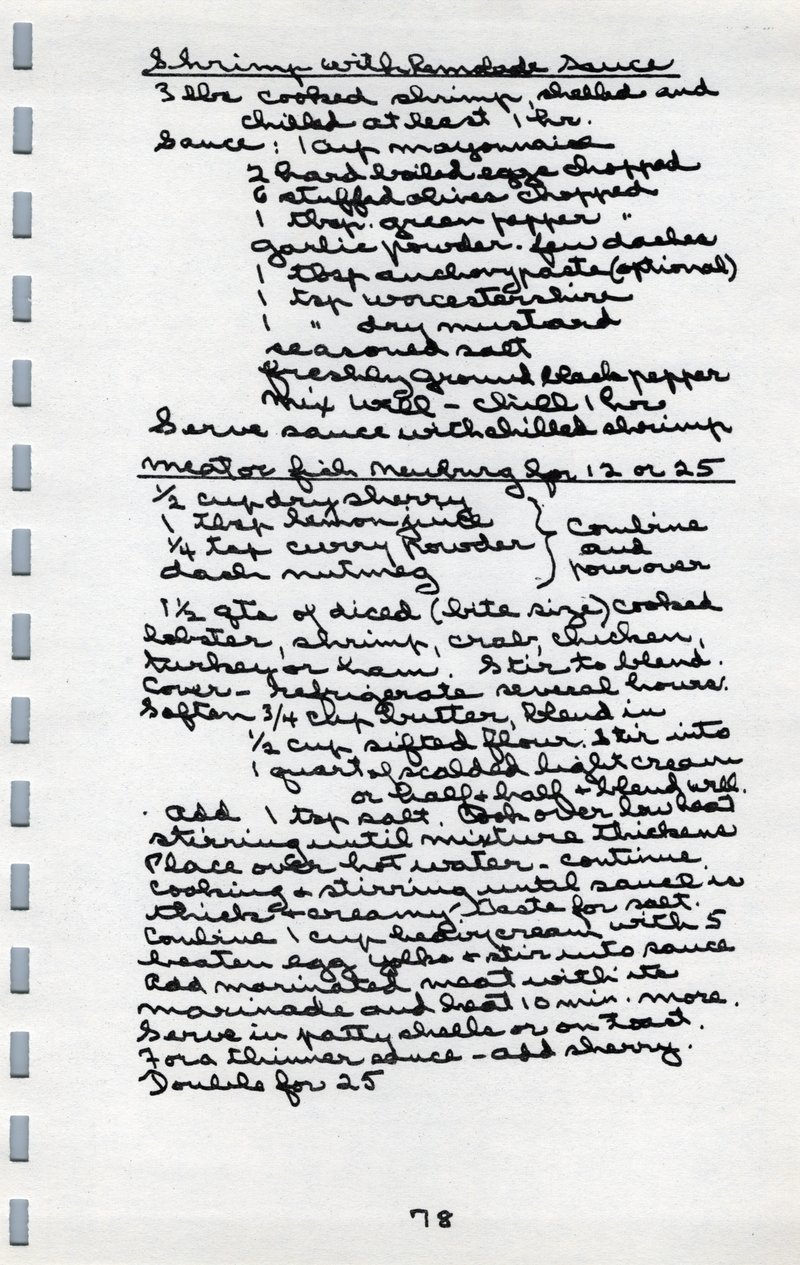 Shrimp with Remolade Sauce
3 lbs cooked shrimp, shelled and
chilled at least 1 hr.
Sauce: 1 cup mayonnaise
2 hard boiled eggs chopped
6 stuffed olives chopped
1 tbsp. green pepper "
garlic powder. few dashes
1 tbsp anchovy paste (optional)
1 tsp worcestershire
1 " dry mustard
seasoned salt
freshly ground black pepper
Mix well - chill 1 hr
Serve sauce with chilled shrimp
Meat or fish Neuburg for 12 or 25
1/2 cup dry sherry
1 tbsp lemon juice
1/4 tsp curry powder
dash nutmeg
Combine
and
pour over
1 1/2 qts of diced (bite size) cooked
lobster, shrimp, crab, chicken,
turkey or ham. Stir to blend.
Cover - refrigerate several hours.
Soften 3/4 cup butter, blend in
1/2 cup sifted flour. Stir into
1 quart of scalded light cream
or half + half + blend well.
Add 1 tsp salt. Cook over low heat
stirring until mixture thickens
Place over hot water - continue
cooking + stirring until sauce is
thick + creamy. Taste for salt.
Combine 1 cup heavy cream with 5
beaten egg yolks + stir into sauce
Add marinated meat with its
marinade and heat 10 min. more.
Serve in patty shells or on toast.
For a thinner sauce - add sherry.
Double for 25
78